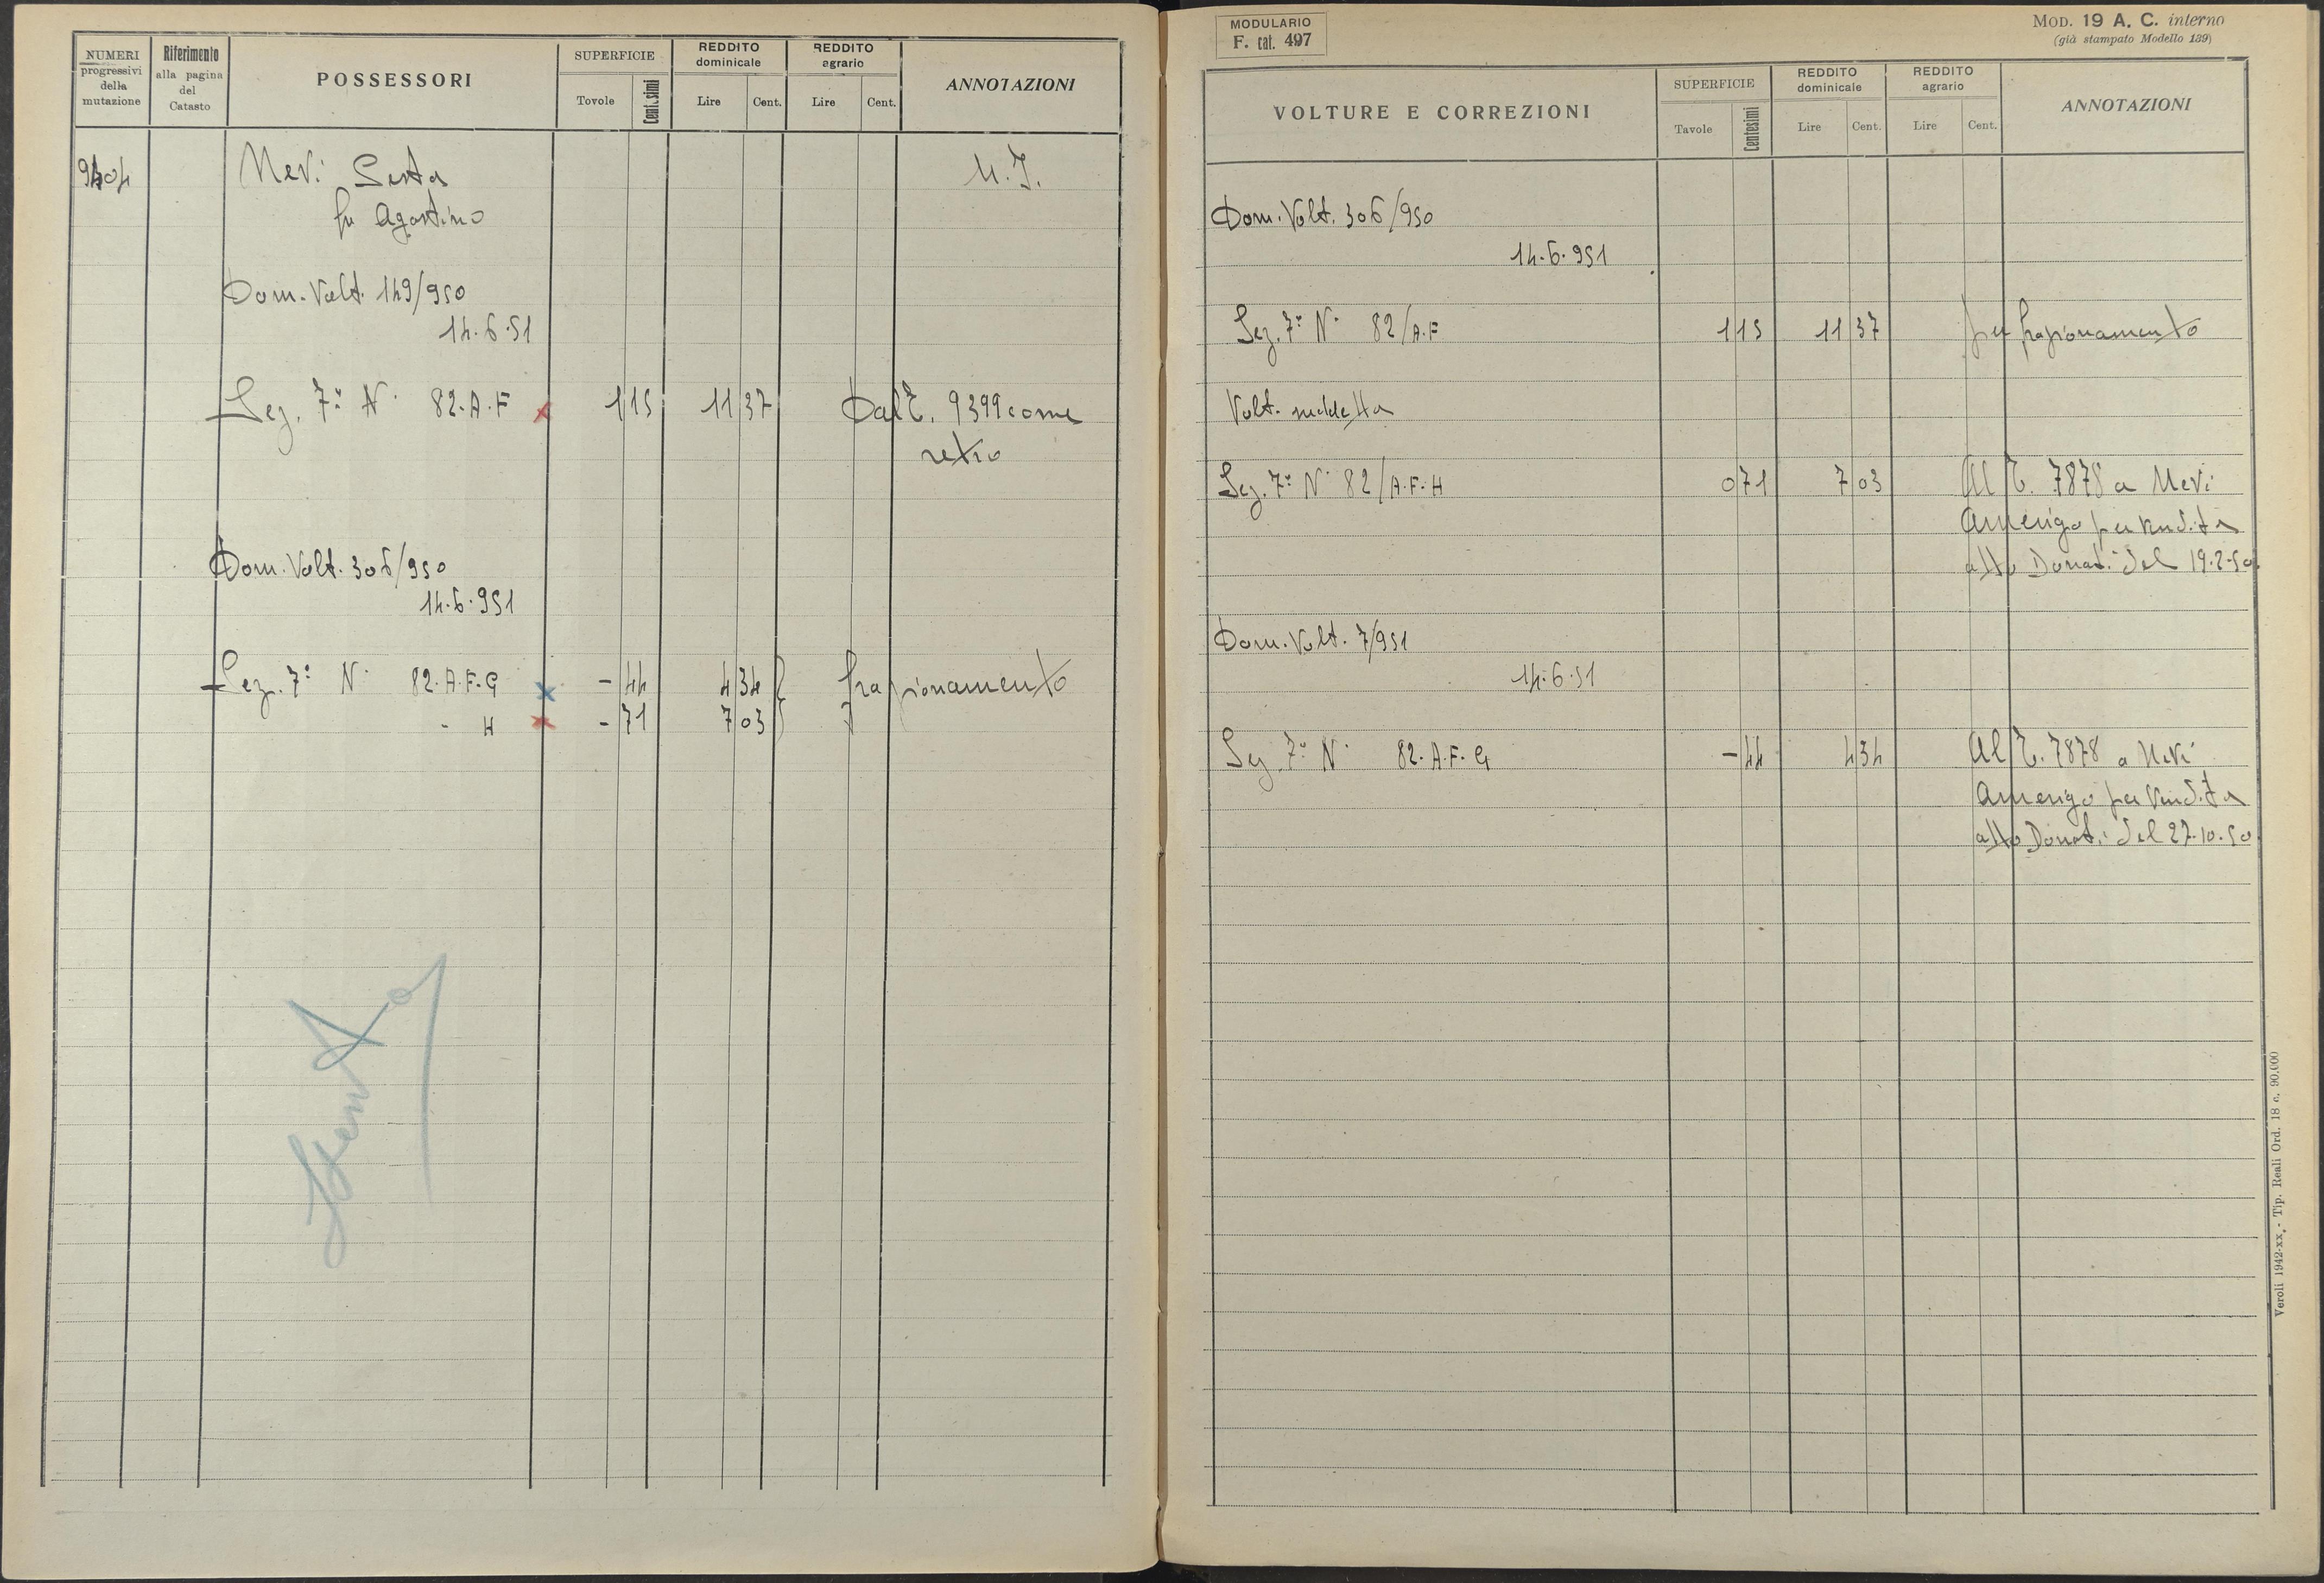 NUMERI progressivi della mutazione | Riferimento alla pagina del Catasto | POSSESSORI | SUPERFICIE Tovole Centesimi | REDDITO dominicale Lire Cent. | REDDITO agrario Lire Cent. | ANNOTAZIONI
9404 Nevi Sesta
fu Agostino
Dom. Volt. 149/950
14.6.51
Sez. 7ª N. 82.A.F 1 15 11 37 Dal T. 9399 come
retro
Dom. Volt. 306/950
14.6.951
Sez. 7ª N. 82.A.F.G - 44 4 34 frazionamento
- H - 71 7 03
MODULARIO
F. cat. 497
MOD. 19 A. C. interno
(già stampato Modello 139)
VOLTURE E CORREZIONI | SUPERFICIE Tavole Centesimi | REDDITO dominicale Lire Cent. | REDDITO agrario Lire Cent. | ANNOTAZIONI
Dom. Volt. 306/950
14.6.951
Sez. 7ª N. 82/A.F 1 15 11 37 per frazionamento
Volt. suddetta
Sez. 7ª N. 82/A.F.H 0 71 7 03 Al T. 7878 a Nevi
Amerigo per vendita
atto Donati del 19.2.50
Dom. Volt. 7/951
14.6.51
Sez. 7ª N. 82.A.F.G - 44 4 34 Al T. 7878 a Nevi
Amerigo per vendita
atto Donati del 27.10.50.
Veroli 1942-XX, - Tip. Reali Ord. 18 c. 90.000